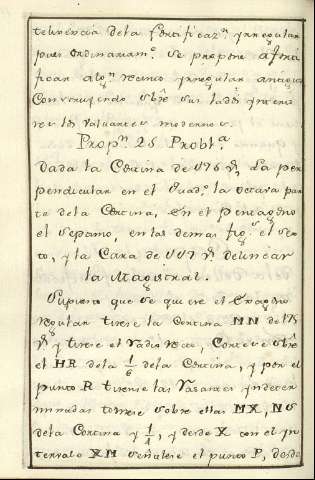 teligencia de la fortificaz.n yrregular
pues ordinariam.te Se propone afortificar
alg.n recinto yrregular antiguo
Construyendo sobre sus lados yntereriores
los Valuartes modernos.
Prop.n 25 Probl.a
Dada la Cortina de V. La perpendicular
en el Quad.o la octava parte
de la Cortina, en el pentagono
el septimo, en las demas fig.s el sexto,
y la Cara de V. delinear
la Magistral.
Supuesto que se quiere el Exagono
regular tirese la Cortina MN de
V. y tirese el radio recto, Cortese sobre
el HR de la 1/6 de la Cortina, y por el
punto R tirense las Rasantes yndeterminadas
tomese sobre ellas MX, NV
de la Cortina y 1/4, y desde X con el yntervalo
XM señalese el punto P, desde